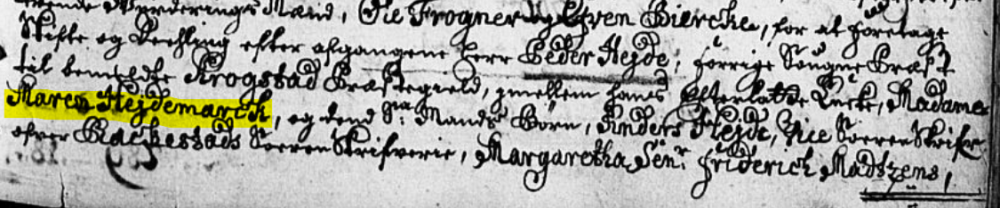 Wurderings Mænd, Ole Frogner og Efven Biercke, for at foretage
Skifte og Deeling efter afgangene Herr Peder Hejde, forrige Sogne Præst
til bemeldte Krogstad Præstegield, imellem hans Efterlatte Encke, Madame
Maren Hejdemarck, og dend Sal: Mands Børn, Anders Hejde, Vice Soeren Skrifr
ofver Rackestads Soeren Skrifverie, Margaretha Sen: Friderich Madszens,